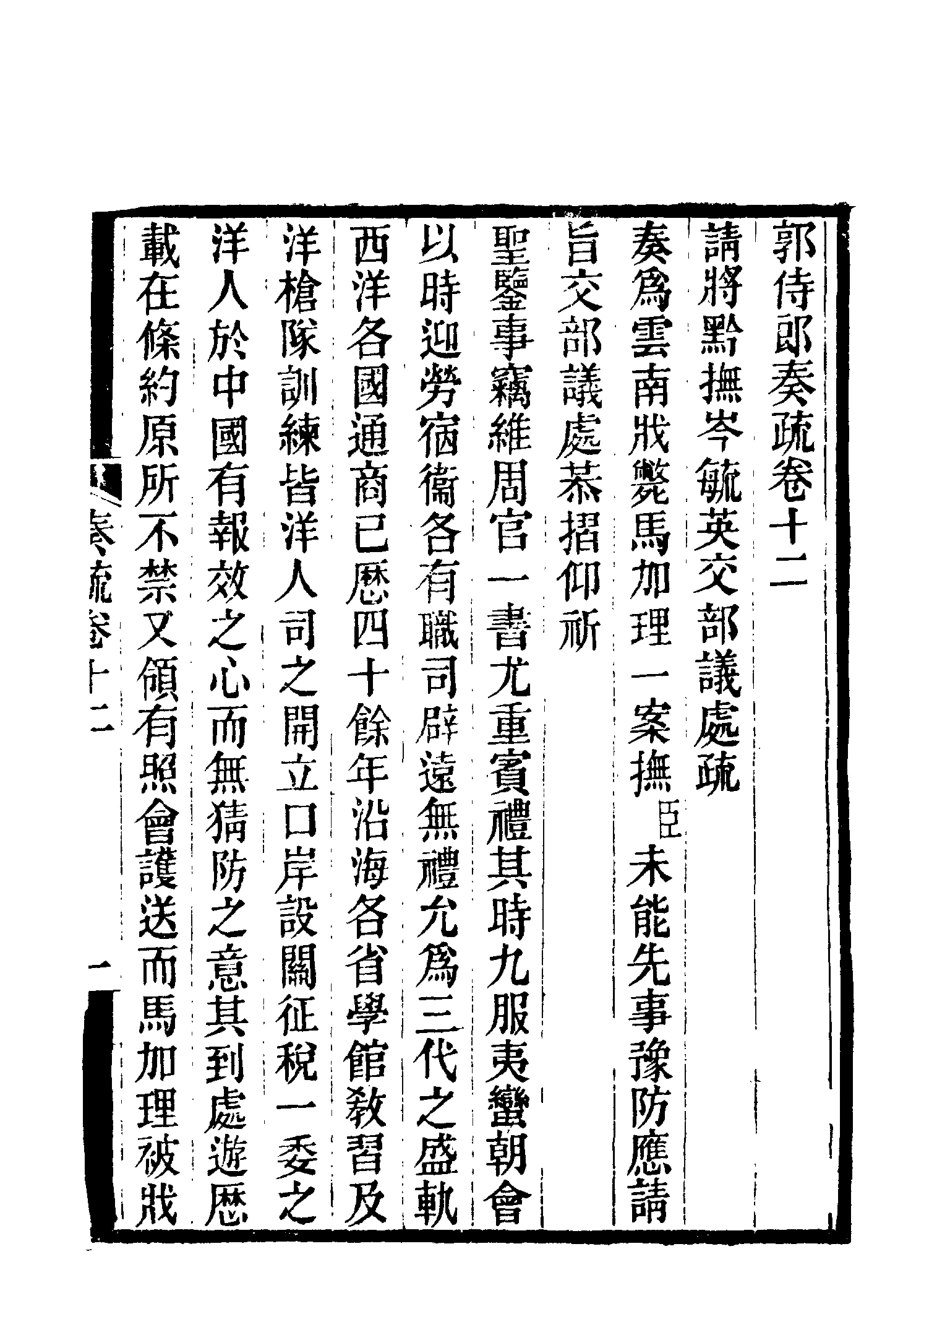 郭侍郎奏疏卷十二
請將黔撫岑毓英交部議處疏
奏爲雲南戕斃馬加理一案撫臣未能先事豫防應請
旨交部議處恭摺仰祈
聖鑒事竊維周官一書尤重賓禮其時九服夷蠻朝會
以時迎勞宿衞各有職司辟遠無禮允爲三代之盛軌
西洋各國通商已厯四十餘年沿海各省學館敎習及
洋槍隊訓練皆洋人司之開立口岸設關征稅一委之
洋人於中國有報效之心而無猜防之意其到處遊厯
載在條約原所不禁又領有照會護送而馬加理被戕
奏疏卷十二
一